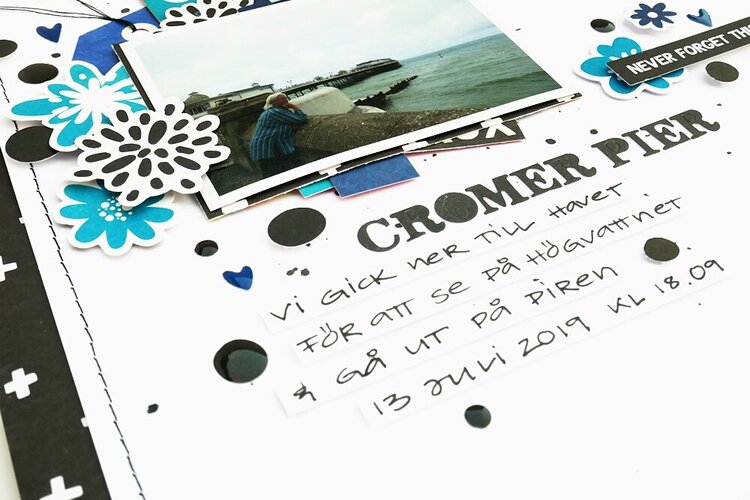 NEVER FORGET THI
CROMER PIER
Vi GiCK NER TiLL HAVET
FÖR ATT SE PÅ HÖGVATTNET
& GÅ UT PÅ PIREN
13 JULI 2019 KL 18.09